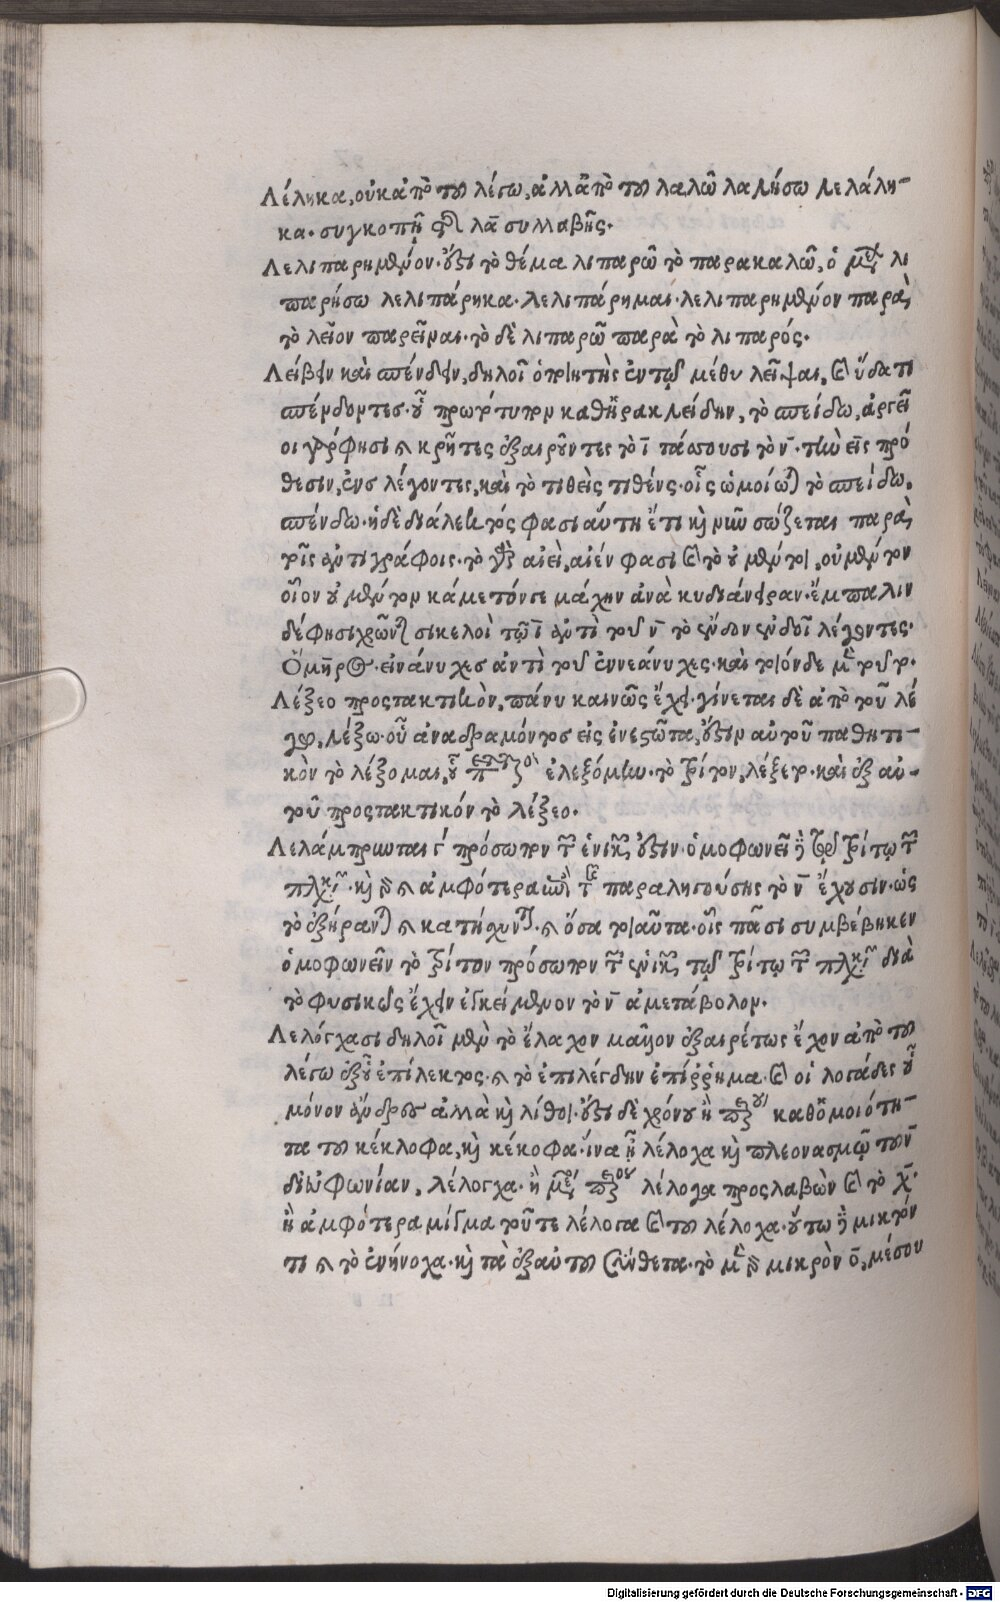 Λέληκα, οὐκ ἀπὸ του λέγω, ἀλλ ἀπὸ του λαλῶ λαλήσω λελάλη-
κα. συγκοπῇ τῆς λα συλλαβῆς.
Λελιπαρημένον. ἔστι τὸ θέμα λιπαρῶ τὸ παρακαλῶ, ὁ μέλλων λι
παρήσω λελιπάρηκα. λελιπάρημαι. λελιπαρημένον παρὰ
τὸ λεῖον παρεῖναι. τὸ δὲ λιπαρῶ παρὰ τὸ λιπαρός.
Λείβειν καὶ σπένδειν, δηλοῖ ὁ ποιητὴς ἐν τῷ μέθυ λεῖψαι, καὶ ὕδατι
σπένδοντες. πρωτότυπον καθ Ἡρακλείδην, τὸ σπείδω, ἀργεῖ
οι φησι καὶ κρῆτες ἐξαιροῦντες τὸ ι τάσσουσι τὸν ν. τὴν εἰς πρό
θεσιν, ἐνς λέγοντες, καὶ τὸ τιθεὶς τιθένς. οἷς ὡμοίωται τὸ σπείδω,
σπένδω. ἡ δὲ διάλεκτός φασι αὕτη ἔτι καὶ νῦν σώζεται παρὰ
τοῖς ἀντιγράφοις. τὸ γὰρ αἰεὶ, αἰέν φασι καὶ τὸ οὐ μέντοι, οὐ μέντον
οἷον οὐ μέντον κάμετόνγε μάχην ἀνὰ κυδιάνειραν. ἔμπαλιν
δέ φησι χρῶνται σικελοὶ τῷ ι ἀντὶ τοῦ ν τὸ ἔνδον ἐνδοῖ λέγοντες.
Ὅμηρος. εἰνάνυχες ἀντὶ τοῦ ἐννεάνυχες. καὶ τοιόνδε μὲν τοῦτο.
Λέξεο προστακτικὸν, πάνυ καινῶς ἔχει. γίνεται δὲ ἀπὸ τοῦ λέ
γω, λέξω. οὗ ἀναδραμόντος εἰς ἐνεστῶτα, ἔστιν αὐτοῦ παθητι-
κὸν τὸ λέξομαι, οὗ ἐλεξόμην. τὸ τρίτον, λέξετο. καὶ ἐξ αὐ-
τοῦ προστακτικόν τὸ λέξεο.
Λελάμπρυνται γ πρόσωπον τῶν ἑνικῶν ἔστιν. ὁμοφωνεῖ δὲ τῷ τρίτῳ τῶν
πληθυντικῶν. καὶ γὰρ καὶ ἀμφότερα ἐπὶ τῆς παραληγούσης τὸ ν ἔχουσιν. ὡς
τὸ ἐξήρανται καὶ κατῄσχυνται. καὶ ὅσα τοιαῦτα. οἷς πᾶσι συμβέβηκεν
ὁμοφωνεῖν τὸ τρίτον πρόσωπον τῶν ἑνικῶν τῷ τρίτῳ τῶν πληθυντικῶν διὰ
τὸ φυσικῶς ἔχειν ἐγκείμενον τὸ ν ἀμετάβολον.
Λελόγχασι δηλοῖ μὲν τὸ ἔλαχον μᾶλλον ἐξαιρέτως ἔχον ἀπὸ του
λέγω ἐξ οὗ ἐπίλεκτος. καὶ τὸ ἐπιλέγδην ἐπίῤῥημα. καὶ οἱ λογάδες οὐ
μόνον ἄνδρες ἀλλὰ καὶ λίθοι. ἔστι δὲ χρόνου ἢ καθ ὁμοιότη-
τα του κέκλοφα, καὶ κέκοφα. ἵνα ᾖ λέλοχα καὶ πλεονασμῷ του ν
δι εὐφωνίαν, λέλογχα. ἢ μέσου λέλογα προσλαβὼν καὶ τὸ χ.
ἢ ἀμφότερα μίγμα τοῦτε λέλογα καὶ του λέλοχα. οὕτω δὲ μικτόν
τι καὶ τὸ ἐνήνοχα. καὶ τὰ ἐξ αὐτου σύνθετα. τὸ μὲν γὰρ μικρὸν ο, μέσου